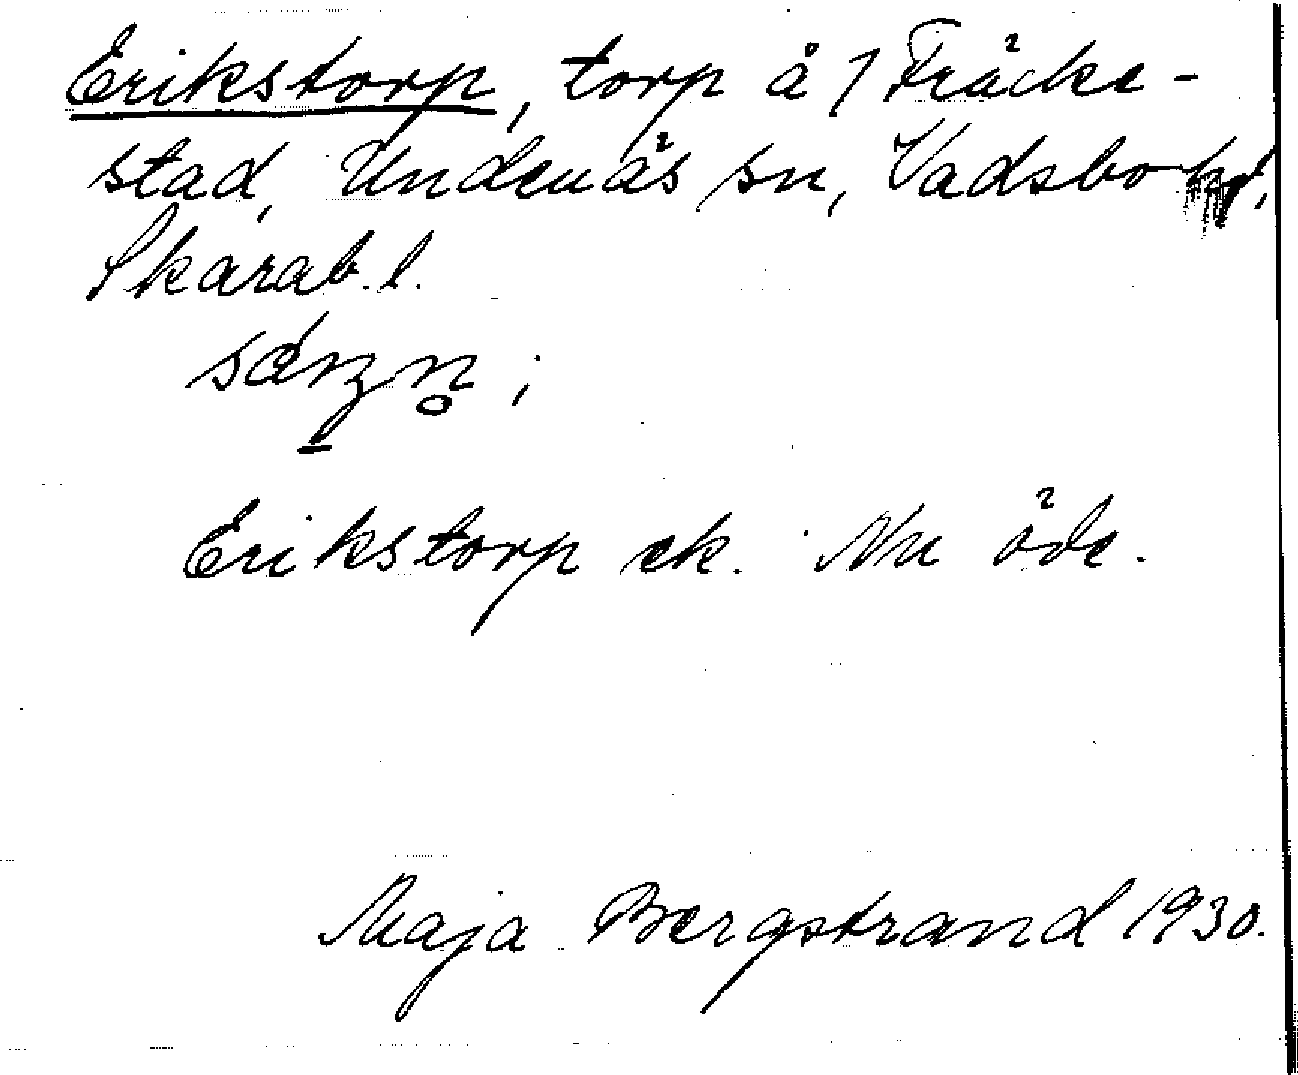 Erikstorp, torp å / Fräcke-
stad, Undenäs sn, Vadsbo hd,
Skarab. l.
Erikstorp ek. Nu öde.
Maja Bergstrand 1930.